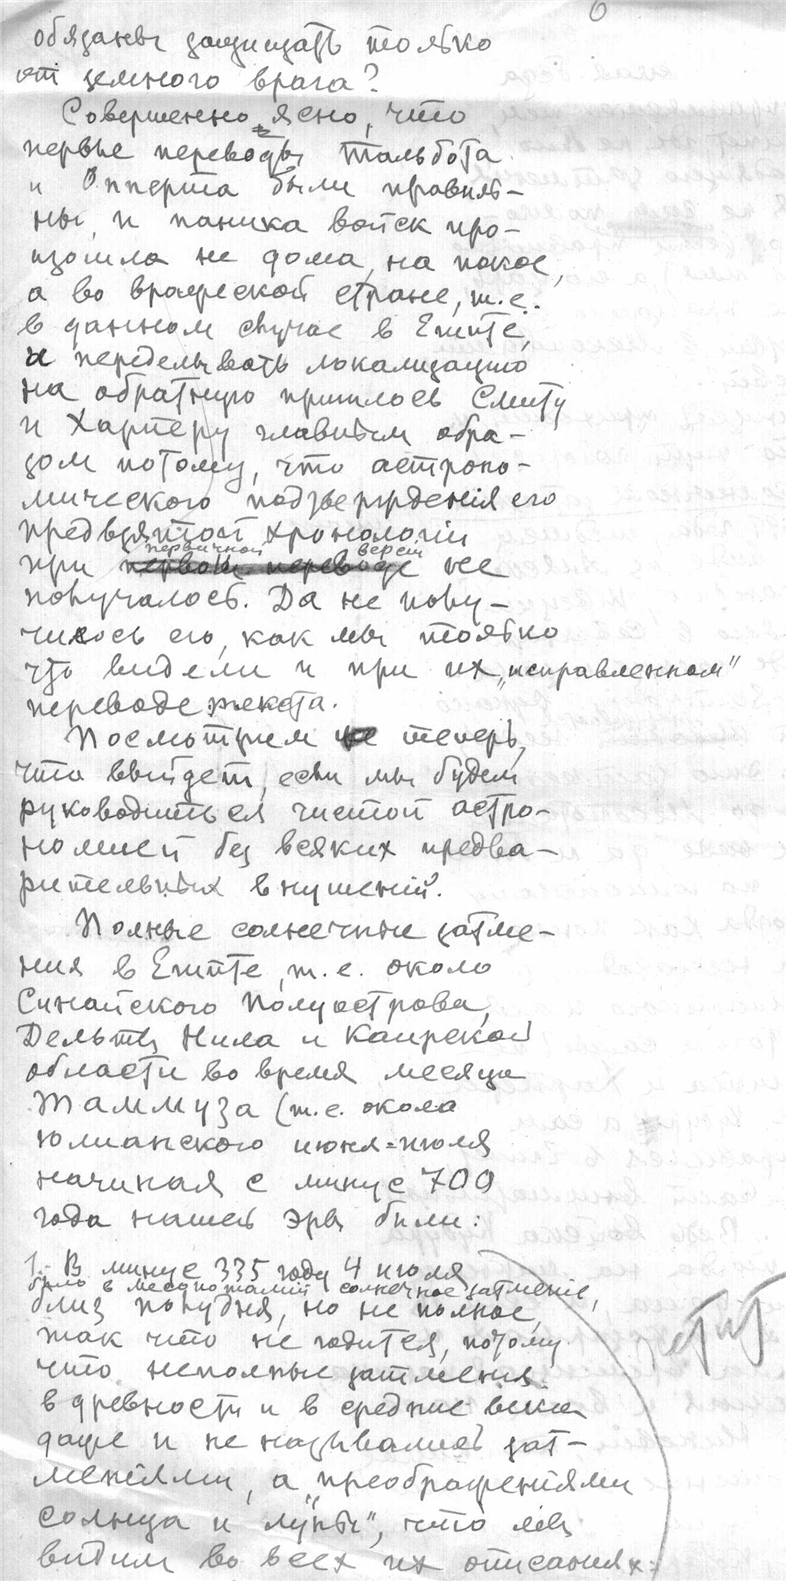 6
обязаны защищать только
от земного врага?
Совершенно ясно, что
первые переводы Тальбота
и Опперта были правиль-
ны, и паника войск про-
изошла не дома, на покое,
а во вражеской стране, т.е.
в данном случае в Египте,
и переделывать локализацию
на обратную пришлось Смиту
и Харперу главным обра-
зом потому, что астроно-
мического подтверждения его
предвзятой хронологии
первичной версии
при первом переводе не
получалось. Да не полу-
чилось его, как мы только
что видели и при их „исправленном“
переводе текста.
Посмотрим теперь,
что выйдет, если мы будем
руководиться чистой астро-
номией без всяких предва-
рительных внушений.
Полные солнечные затме-
ния в Египте, т.е. около
Синайского Полуострова,
Дельты Нила и Каирской
области во время месяца
Таммуза (т.е. около
юлианского июня=июля
начиная с минус 700
года нашей эры были:
1. В минус 335 году 4 июля
было в месопотамии солнечное затменіе,
близ полудня, но не полное,
так что не годится, потому
что неполные затмения
в древности и в средние века
даже и не назывались зат-
меніями, а „преображеніями
солнца и луны“, что мы
видим во всех их описаниях:
петит